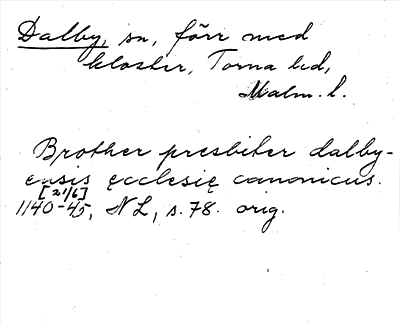 Dalby, sn, förr med
kloster, Torna hd,
Malm. l.
Brother presbiter dalby-
ensis ęcclesię canonicus.
[21/6]
1140-45, NL, s. 78. orig.